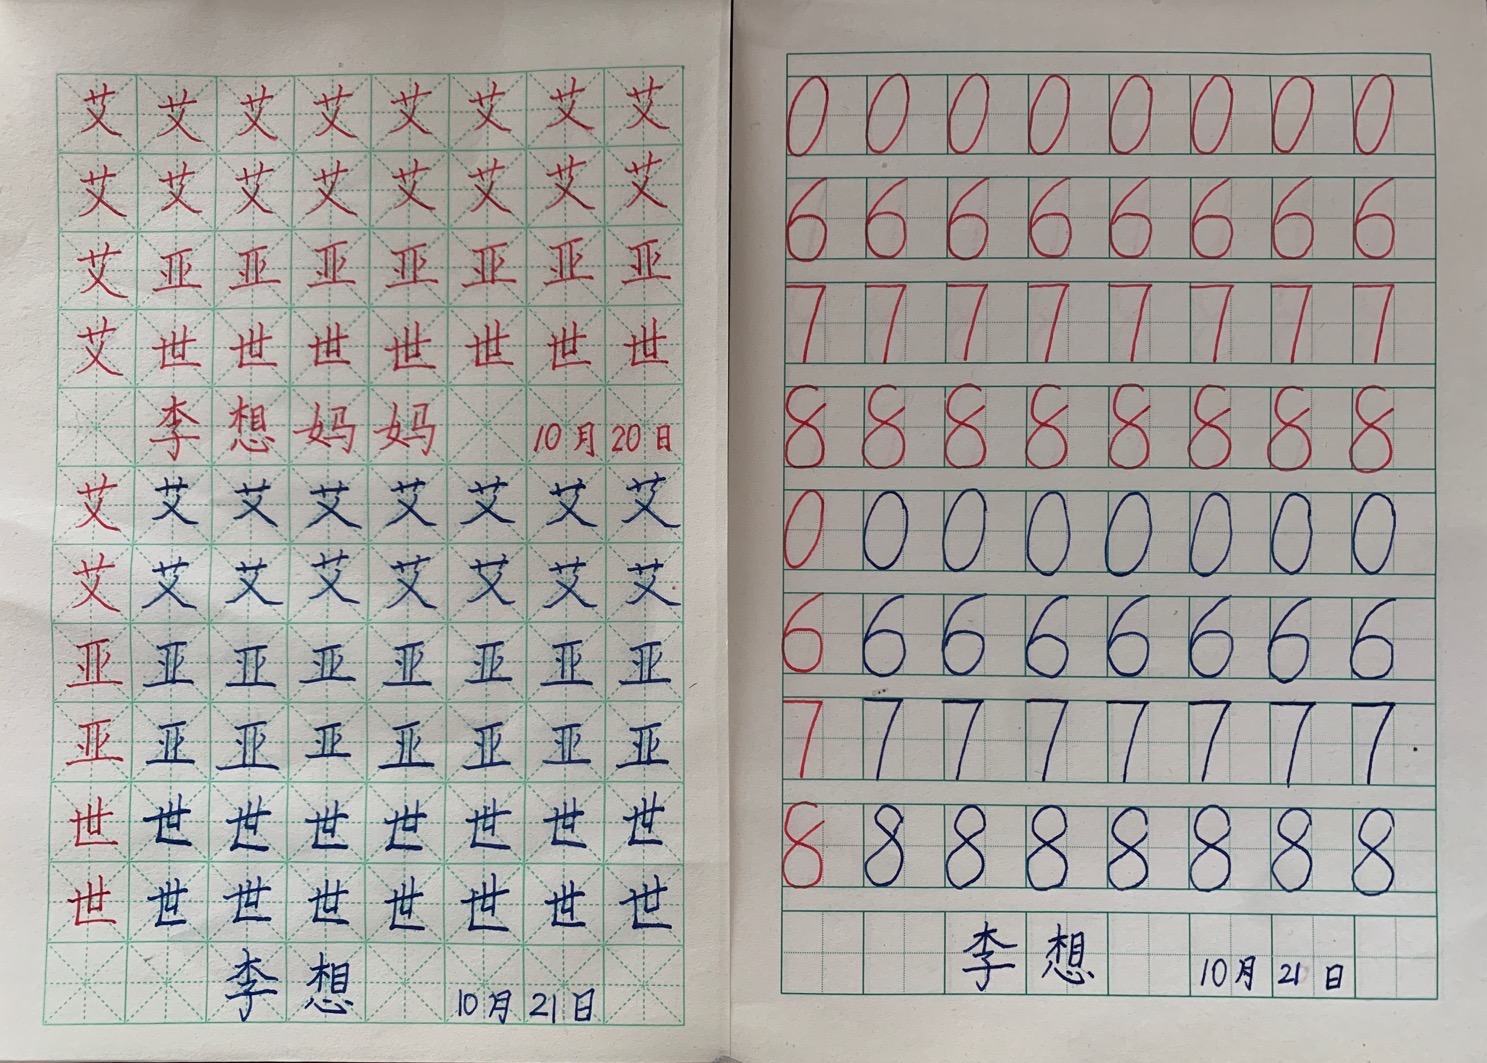 艾 艾 艾 艾 艾 艾 艾 艾
艾 艾 艾 艾 艾 艾 艾 艾
艾 亚 亚 亚 亚 亚 亚 亚
艾 世 世 世 世 世 世 世
李 想 妈 妈 10月20日
艾 艾 艾 艾 艾 艾 艾 艾
艾 艾 艾 艾 艾 艾 艾 艾
亚 亚 亚 亚 亚 亚 亚 亚
亚 亚 亚 亚 亚 亚 亚 亚
世 世 世 世 世 世 世 世
世 世 世 世 世 世 世 世
李 想 10月21日
0 0 0 0 0 0 0 0
6 6 6 6 6 6 6 6
7 7 7 7 7 7 7 7
8 8 8 8 8 8 8 8
0 0 0 0 0 0 0 0
6 6 6 6 6 6 6 6
7 7 7 7 7 7 7 7
8 8 8 8 8 8 8 8
李 想 10月21日